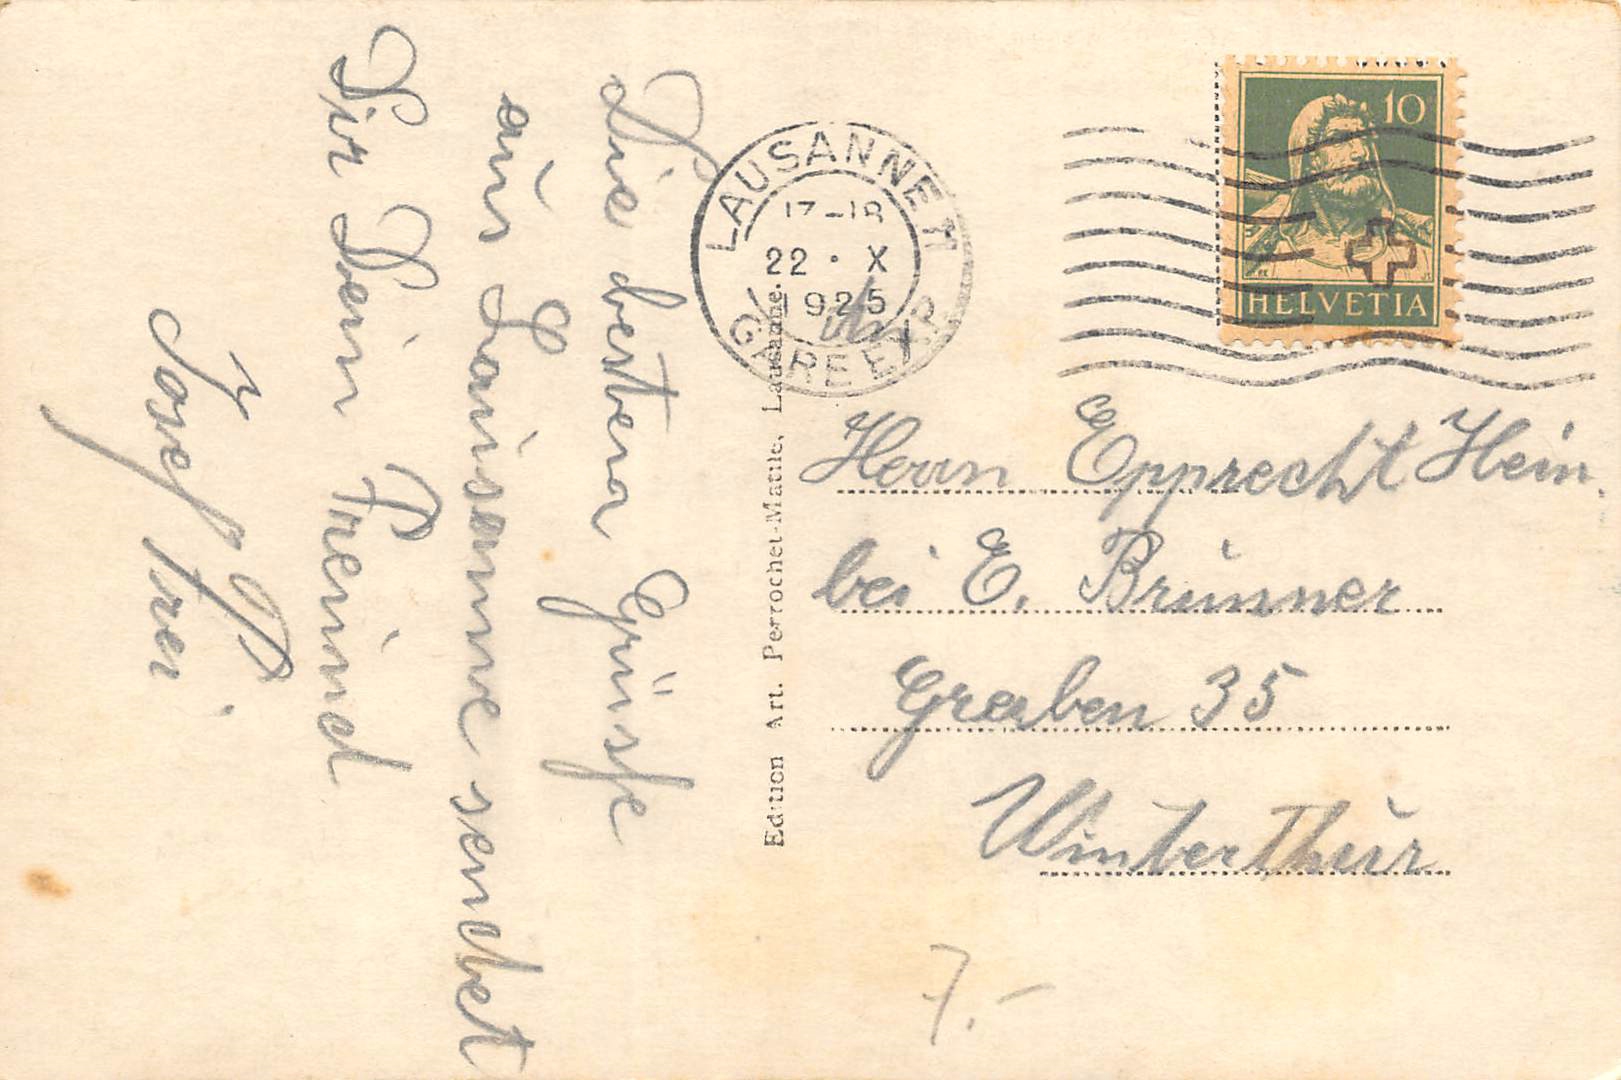 Die besten Grüsse
aus Lausanne sendet
Dir Dein Freund
Josef Frei
Edition Art. Perrochet-Matile, Lausanne.
LAUSANNE
17-18
22 · X
1925
GARE EXP.
10
HELVETIA
Herrn Epprecht Hein.
bei E. Brunner
Graben 35
Winterthur
7.-